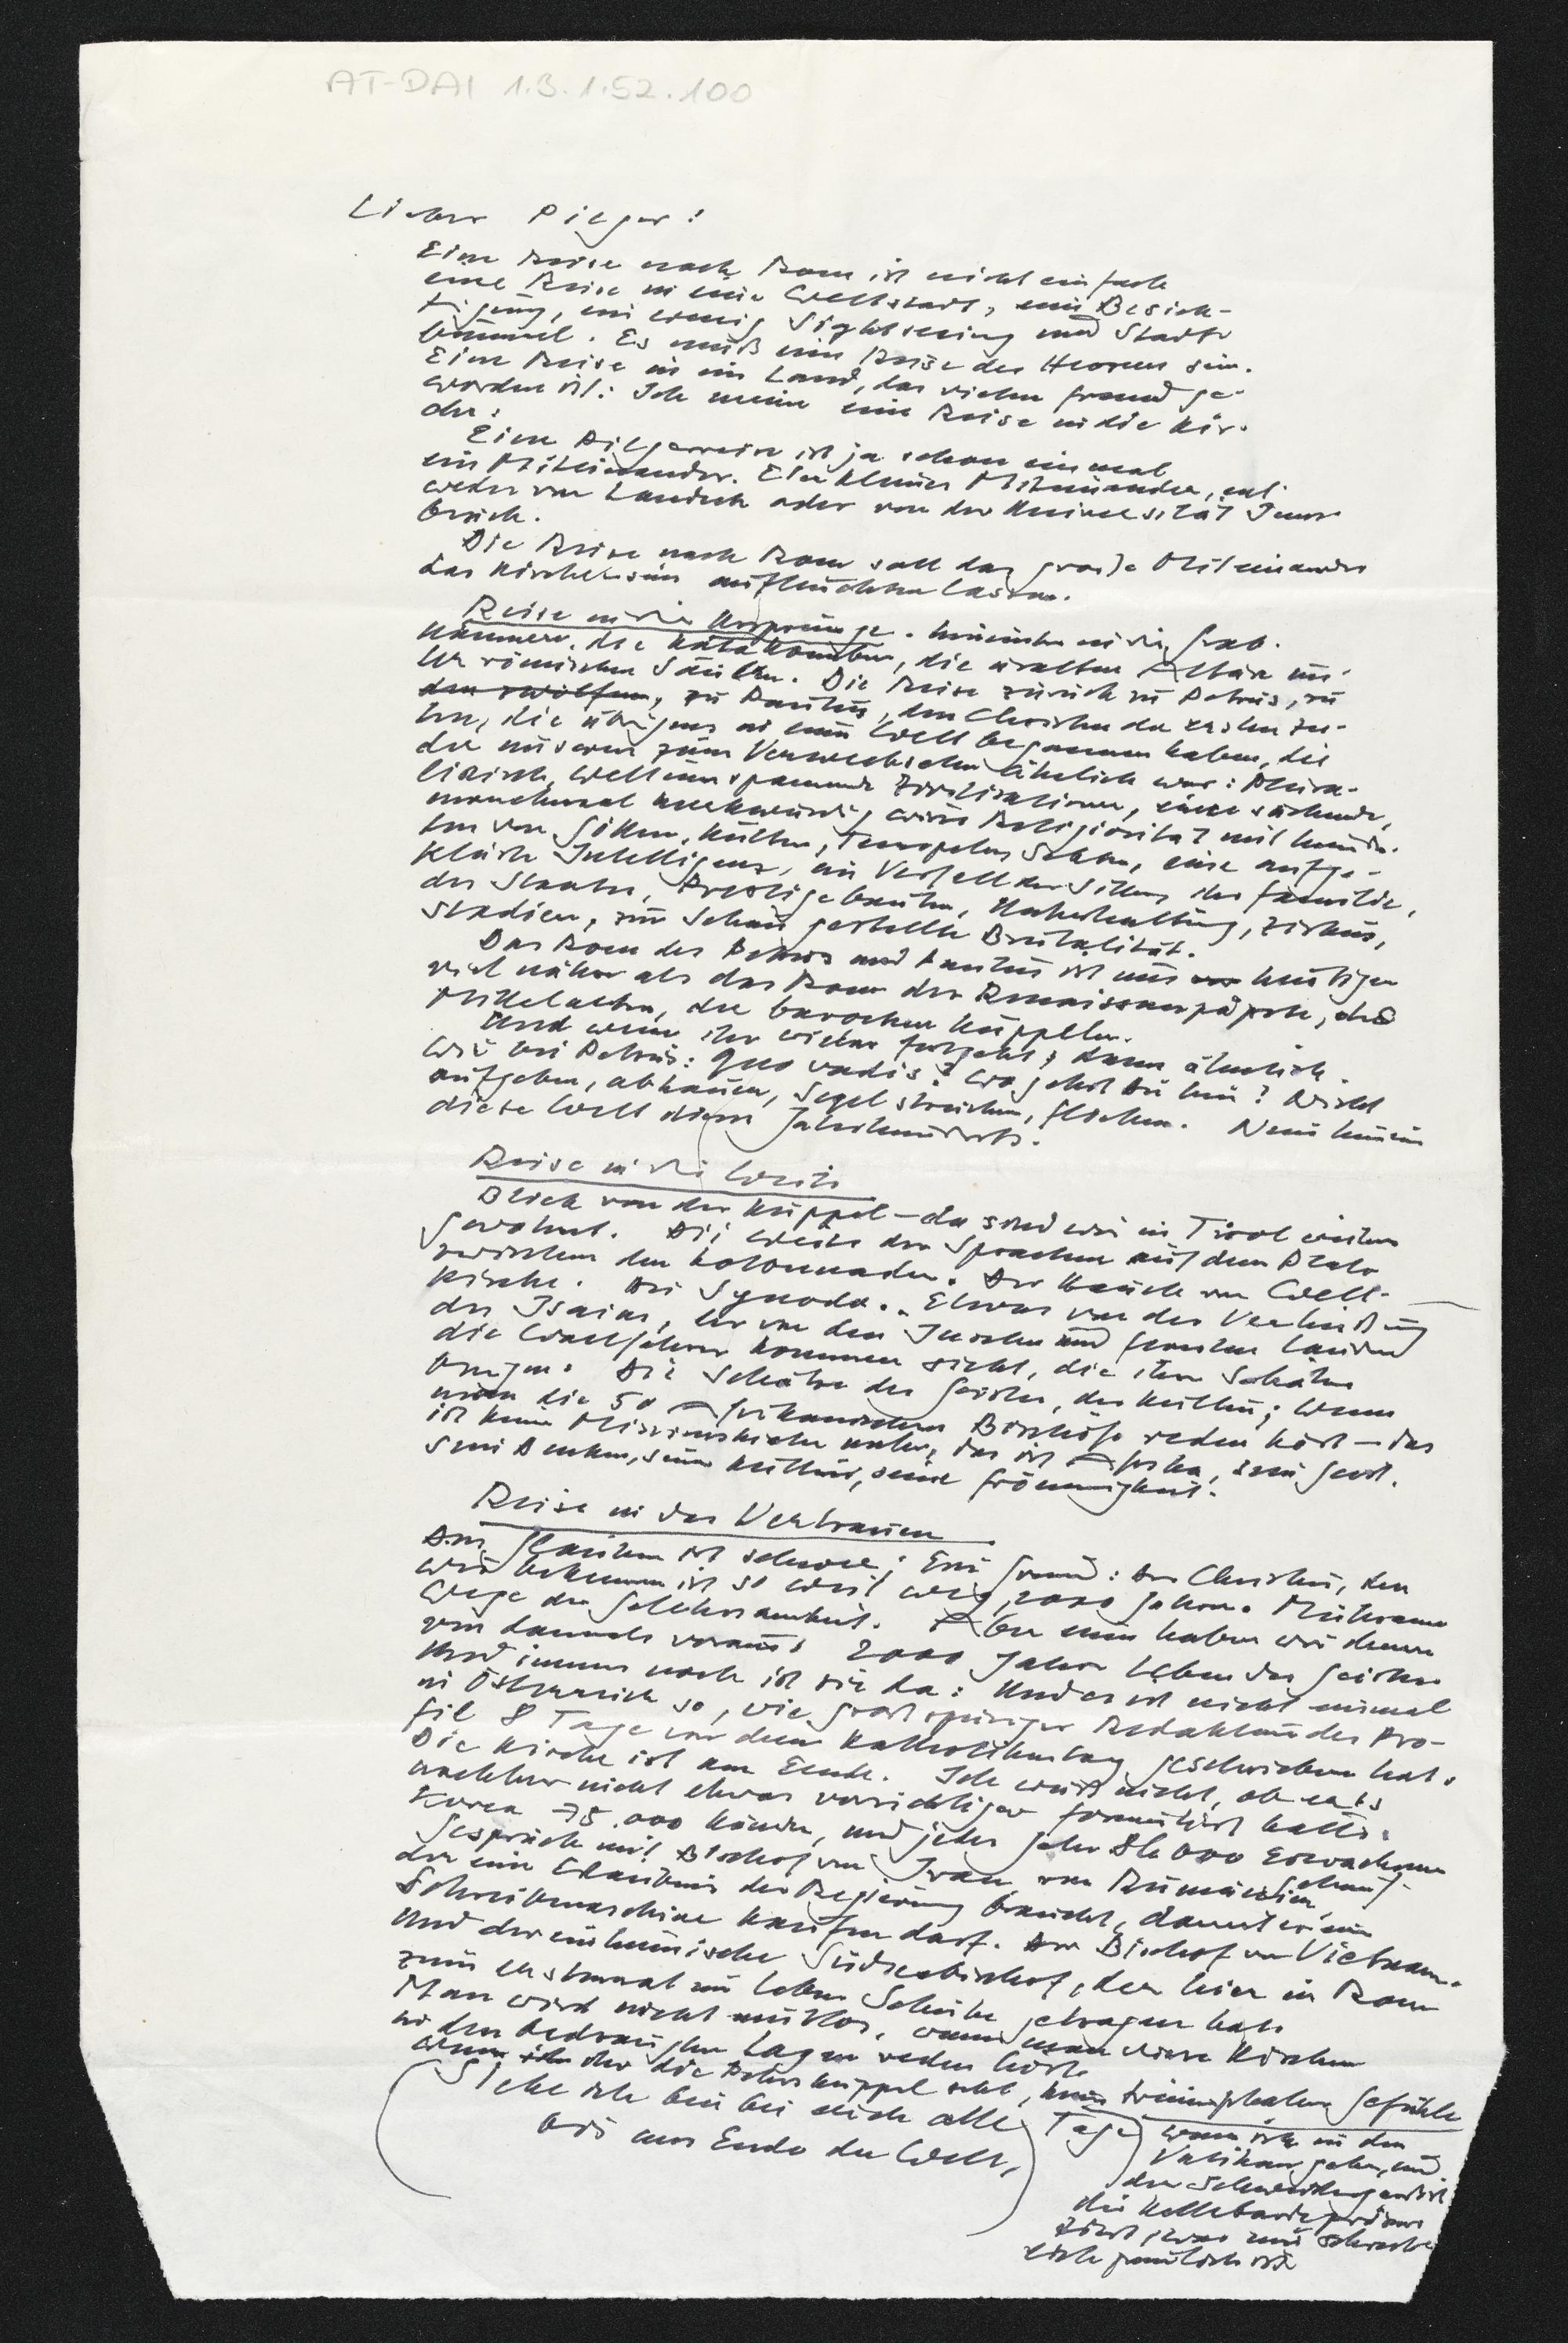 AT-DAI 1.3.1.52.100
Liebe Pilger!
Eine Reise nach Rom ist nicht einfach
eine Reise in eine Weltstadt, eine Besich-
tigung, ein wenig Sightseeing und Stadt-
bummel. Es muß eine Reise des Herzens sein.
Eine Reise in ein Land, das vielen fremd ge-
worden ist: Ich meine eine Reise in die Kir-
che.
Eine Pilgerreise ist ja schon einmal
ein Miteinander. Ein kleines Miteinander, ent-
weder von Landeck oder von der Universität Inns-
bruck.
Die Reise nach Rom soll das große Miteinander
das Kirche sein aufleuchten lassen.
Reise in die Ursprünge. hinunter in die Grab-
kammern, die Katakomben, die uralten Altäre un-
ter römischen Säulen. Die Reise zurück zu Petrus, zu
den zwölfen, zu Paulus, den Christen der ersten Zei-
ten, die übrigens in einer Welt begonnen haben, die
der unseren zum Verwechseln ähnlich war: Plura-
listisch, weltumspannende Zivilisationen, eine suchende,
manchmal merkwürdig wirre Religiosität mit hunder-
ten von Göttern, Kulten, Tempeln, Sekten, eine aufge-
klärte Intelligenz, ein Verfall der Sitten, der Familie,
des Staates, Prestigebauten, Unterhaltung, Zirkus,
Stadien, zur Schau gestellte Brutalität.
Das Rom des Petrus und Paulus ist uns heutigen
viel näher als das Rom der Renaissancepäpste, des
Mittelalters, der barocken Kuppeln.
Und wenn ihr wieder fortgeht, dann ähnlich
wie bei Petrus: Quo vadis? Wo gehst du hin? Nicht
aufgeben, abhauen, Segel streichen, fliehen. Nein hinein
diese Welt dieses Jahrhunderts.
Reise in die Weite
Blick von der Kuppel – da sind wir in Tirol weitere
gewohnt. Die Weite der Sprachen auf dem Platz
zwischen den Kolonnaden. Der Hauch von Welt-
kirche. Die Synode. Etwas von der Verheißung
des Isaias, der von den Inseln und fernsten Landen
die Wallfahrer kommen sieht, die ihre Schätze
bringen. Die Schätze des Geistes, der Kultur; wenn
man die 50 Afrikanischen Bischöfe reden hört – das
ist keine Missionskirche mehr, das ist Afrika, sein Geist,
sein Denken, seine Kultur, seine Frömmigkeit.
Reise in das Vertrauen
Der Glauben ist schwer; Ein Grund: Der Christus, den
wir bekennen ist so weit weg, 2000 Jahre. Mühsame
Wege der Gelehrsamkeit. Aber nun haben wir denen
von damals voraus 2000 Jahre Leben des Geistes
Und immer noch ist sie da: Und es ist nicht einmal
in Österreich so, wie großspuriger Redakteur des Pro-
fil 8 Tage vor dem Katholikentag geschrieben hat.
Die Kirche ist am Ende. Ich weiß nicht, ob er es
nachher nicht etwas vorsichtiger formuliert hätte.
Korea 75.000 Kinder, und jedes Jahr 80.000 Erwachsene
Gespräch mit Bischof von Iran, von Rumänien,
der eine Erlaubnis der Regierung braucht, damit er eine
Schreibmaschine kaufen darf. Der Bischof von Vietnam.
Und der einheimische Südseebischof, der hier in Rom
zum erstenmal im Leben Schuhe getragen hat.
Man wird nicht mutlos, wenn man diese Kirchen
in den bedrängten Lagen reden hört.
Wenn ihr die Peterskuppel seht, keine triumphalen Gefühle
(Siehe ich bin bei euch alle Tage
bis ans Ende der Welt.)
wenn ich in den
Vatikan gehe, und
der Schweizergardist
die Hellebarde präsen-
tiert, was mir schreck-
lich peinlich ist